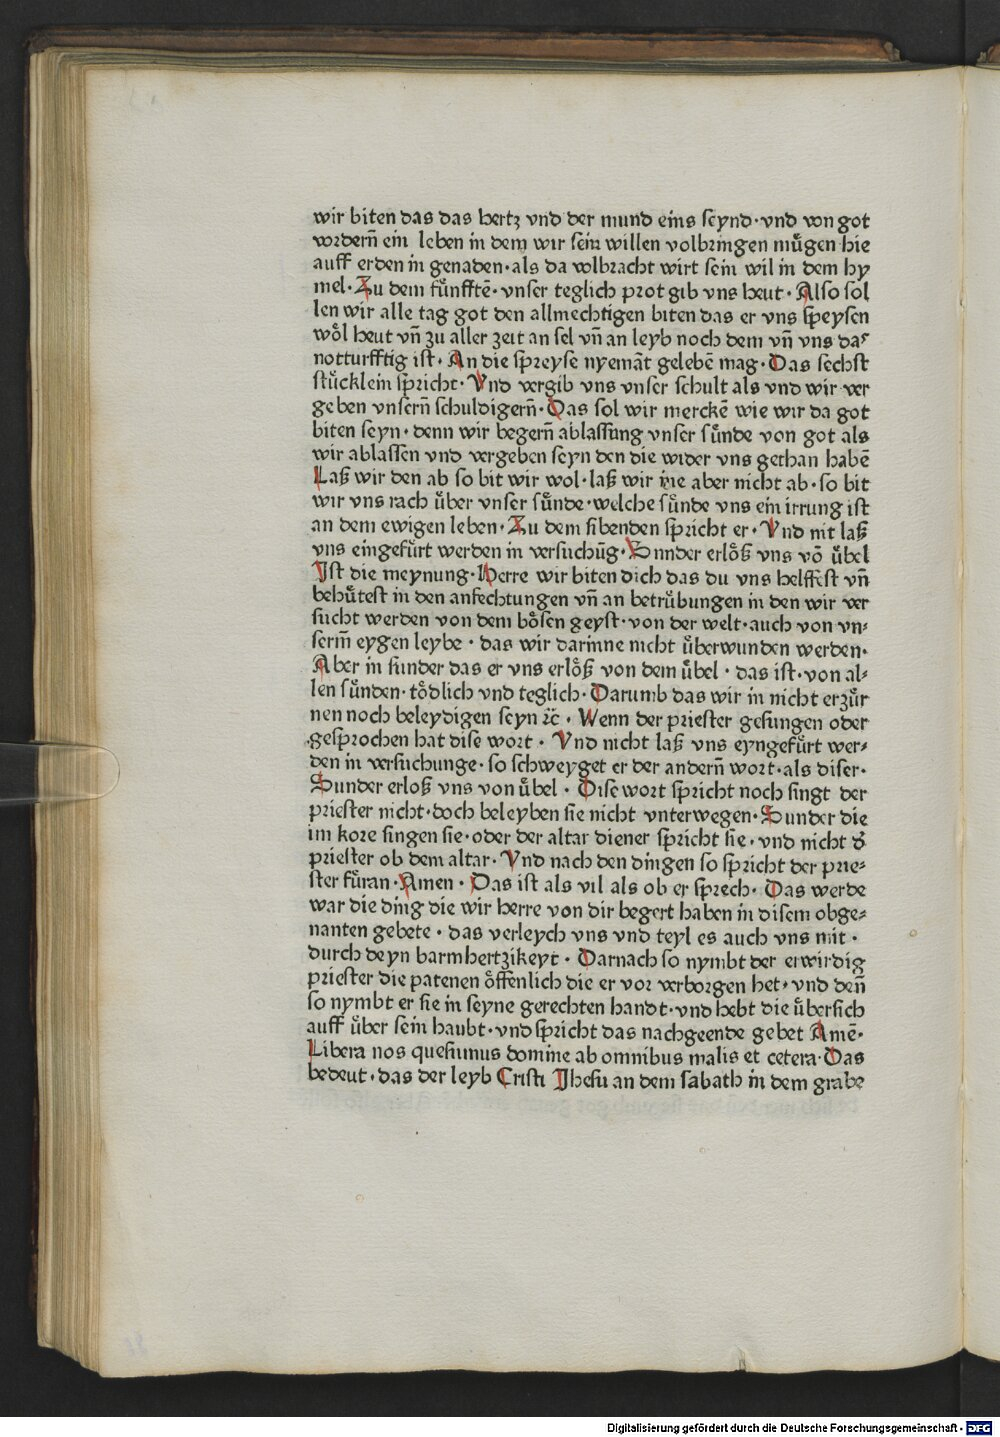 wir biten das das hertz vnd der mund eins seynd·vnd von got
vordern̄ ein leben in dem wir sein willen volbringen mu̇gen hie
auff erden in genaden·als da volbracht wirt sein wil in dem hy
mel·Zu dem fu̇nfftē·vnser teglich prot gib vns heut·Also sol
len wir alle tag got den allmechtigen biten das er vns speysen
wo̊l heut vn̄ zu aller zeit an sel vn̄ an leyb noch dem vn̄ vns das
notturfftig ist·An die spreyse nyemāt gelebē mag·Das sechst
stu̇cklein spricht·Vnd vergib vns vnser schult als vnd wir ver
geben vnsern̄ schuldigern̄·Das sol wir merckē wie wir da got
biten seyn·denn wir begern̄ ablassung vnser su̇nde von got als
wir ablassen vnd vergeben seyn den die wider vns gethan habē
Laß wir den ab so bit wir wol·laß wir nie aber nicht ab·so bit
wir vns rach u̇ber vnser su̇nde·welche su̇nde vns ein irrung ist
an dem ewigen leben·Zu dem sibenden spricht er·Vnd nit laß
vns eingefu̇rt werden in versuchūg·Sunder erlo̊ß vns vō u̇bel
Ist die meynung·Herre wir biten dich das du vns helffest vn̄
behu̇test in den anfechtungen vn̄ an betru̇bungen in den wir ver
sucht werden von dem bo̊sen geyst·von der welt·auch von vn⸗
serm̄ eygen leybe·das wir darinne nicht u̇berwunden werden·
Aber in sunder das er vns erlo̊ß von dem u̇bel·das ist·von al⸗
len su̇nden·to̊dlich vnd teglich·Darumb das wir in nicht erzu̇r
nen noch beleydigen seyn ꝛc̄·Wenn der priester gesungen oder
gesprochen hat dise wort·Vnd nicht laß vns eyngefu̇rt wer⸗
den in versuchunge·so schweyget er der andern̄ wort·als diser·
Sunder erloß vns von u̇bel·Dise wort spricht noch singt der
priester nicht·doch beleyben sie nicht vnterwegen·Sunder die
im kore singen sie·oder der altar diener spricht sie·vnd nicht d̕
priester ob dem altar·Vnd nach den dingen so spricht der prie⸗
ster fu̇ran·Amen·Das ist als vil als ob er sprech·Das werde
war die ding die wir herre von dir begert haben in disem obge⸗
nanten gebete·das verleych vns vnd teyl es auch vns mit·
durch deyn barmhertzikeyt·Darnach so nymbt der erwirdig
priester die patenen o̊ffenlich die er vor verborgen het·vnd den̄
so nymbt er sie in seyne gerechten handt·vnd hebt die u̇bersich
auff u̇ber sein haubt·vnd spricht das nachgeende gebet Amē·
Libera nos quesumus domine ab omnibus malis et cetera·Das
bedeut·das der leyb Cristi Jhesu an dem sabath in dem grabe
Digitalisierung gefördert durch die Deutsche Forschungsgemeinschaft - DFG